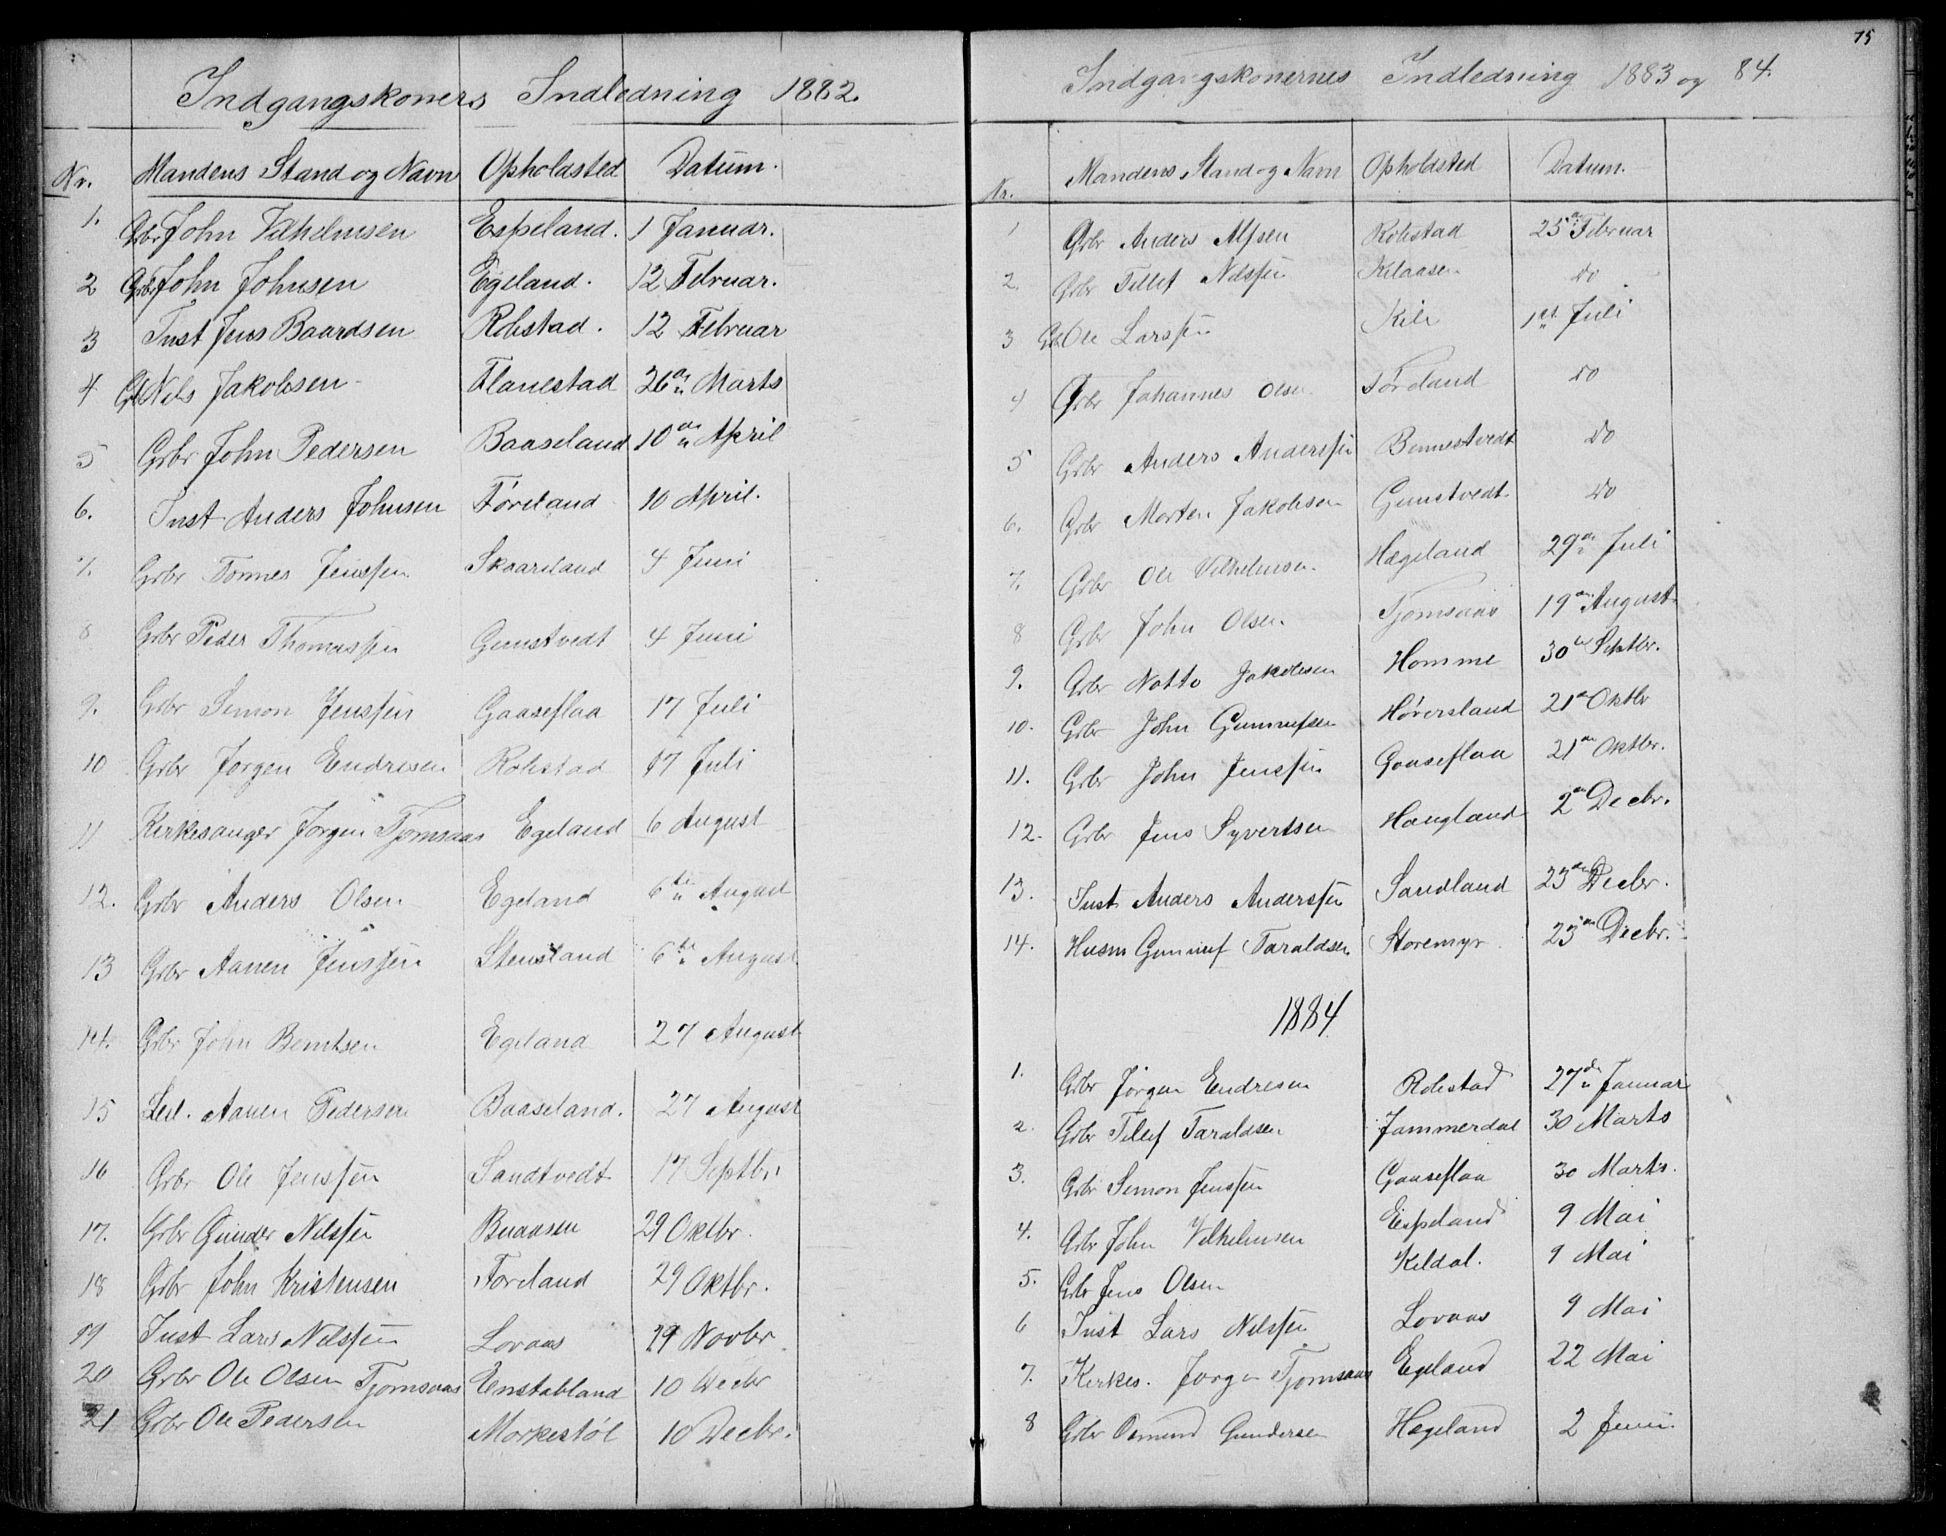 Indgangskoners Indledning 1882.
Nr. Mandens Stand og Navn Opholdsted Datum.
1. Grbr John Vilhelmsen Espeland. 1 Januar.
2 Grbr John Johnsen Egeland. 12 Februar.
3 Inst Jens Baardsen Robstad. 12 Februar
4 Gb Nils Jakobsen Flanestad 26de Marts
5 Grbr John Pedersen Baaseland 10de April
6. Inst Anders Johnsen Føreland 10 April.
7. Grbr Tønnes Jenssen Skaareland 4 Juni
8 Grbr Peder Thomassen Gumstvedt 4 Juni
9. Grbr Simon Jenssen Gaaseflaa 17 Juli
10 Grbr Jørgen Endresen Robstad 17 Juli
11 Kirkesanger Jørgen Tjomsaas Egeland 6 August
12. Grbr Anders Olsen Egeland 6te August
13 Grbr Aanen Jenssen Stensland 6te August
14. Grbr John Berntsen Egeland 27 August
15 Leil. Aanen Pedersen Baaseland. 27 August
16 Grbr Ole Jenssen Sandtvedt 17 Septbr.
17. Grbr Gunder Nilssen 29 Oktbr.
18 Grbr John Kristensen Foreland 29 Oktbr.
19 Inst Lars Nilssen Lovaas 29 Novbr
20 Grbr Ole Olsen Tjomsaas Enstabland 10 Decbr
21 Grbr Ole Pedersen Morkestøl 10 Decbr.
75
Indgangskonernes Indledning 1883 og 84.
Nr. Mandens Stand og Navn Opholdsted Datum.
1 Grbr Anders Alfsen Robstad 25de Februar
2. Grbr Tellef Nilssen Kilaasen do
3 Gb Ole Larssen Kile 1st Juli
4 Grbr Johannes Olsen Føreland do
5 Grbr Anders Anderssen Bennestvedt do
6. Grbr Morten Jakobsen Gumstvedt. do
7. Grbr Ole Vilhelmsen. Hægeland 29de Juli
8 Grbr John Olsen. Tjomsaas 19de August
9. Grbr Notto Jakobsen Homme 30te Septbr.
10. Grbr John Gunnufsen Høversland 21de Oktbr
11. Grbr John Jenssen Gaaseflaa 21de Oktbr.
12. Grbr Jens Syvertsen Haugland 2den Decbr.
13. Inst Anders Anderssen Sandland 23de Decbr.
14. Husm Gunnuf Taraldsen Storemyr. 23de Decbr.
1884
1. Grbr Jørgen Endresen Robstad 27de Januar
2. Grbr Tellef Taraldsen Jammerdal 30 Marts
3. Grbr Simon Jenssen Gaaseflaa 30 Marts.
4. Grbr John Vilhelmsen Espeland 9 Mai
5. Grbr Jens Olsen Kildal. 9 Mai
6 Inst Lars Nilssen Lovaas 9 Mai
7. Kirkes. Jørgen Tjomsaas Egeland 22 Mai
8 Grbr Osmund Gundersen Hægeland 2 Juni